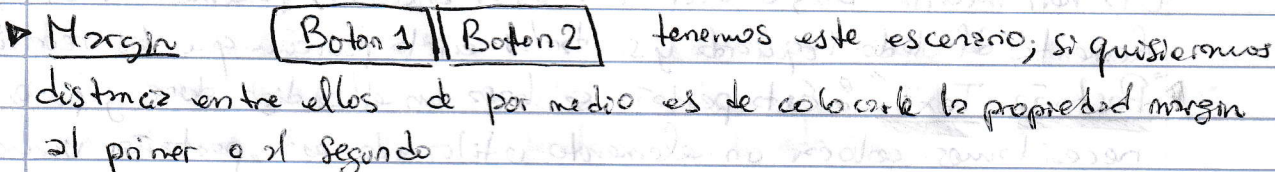 ▷ Margin Boton 1 Boton 2 tenemos este escenario; si quisieramos
distancia entre ellos de por medio es de colocarle la propiedad margin
al primer o al segundo